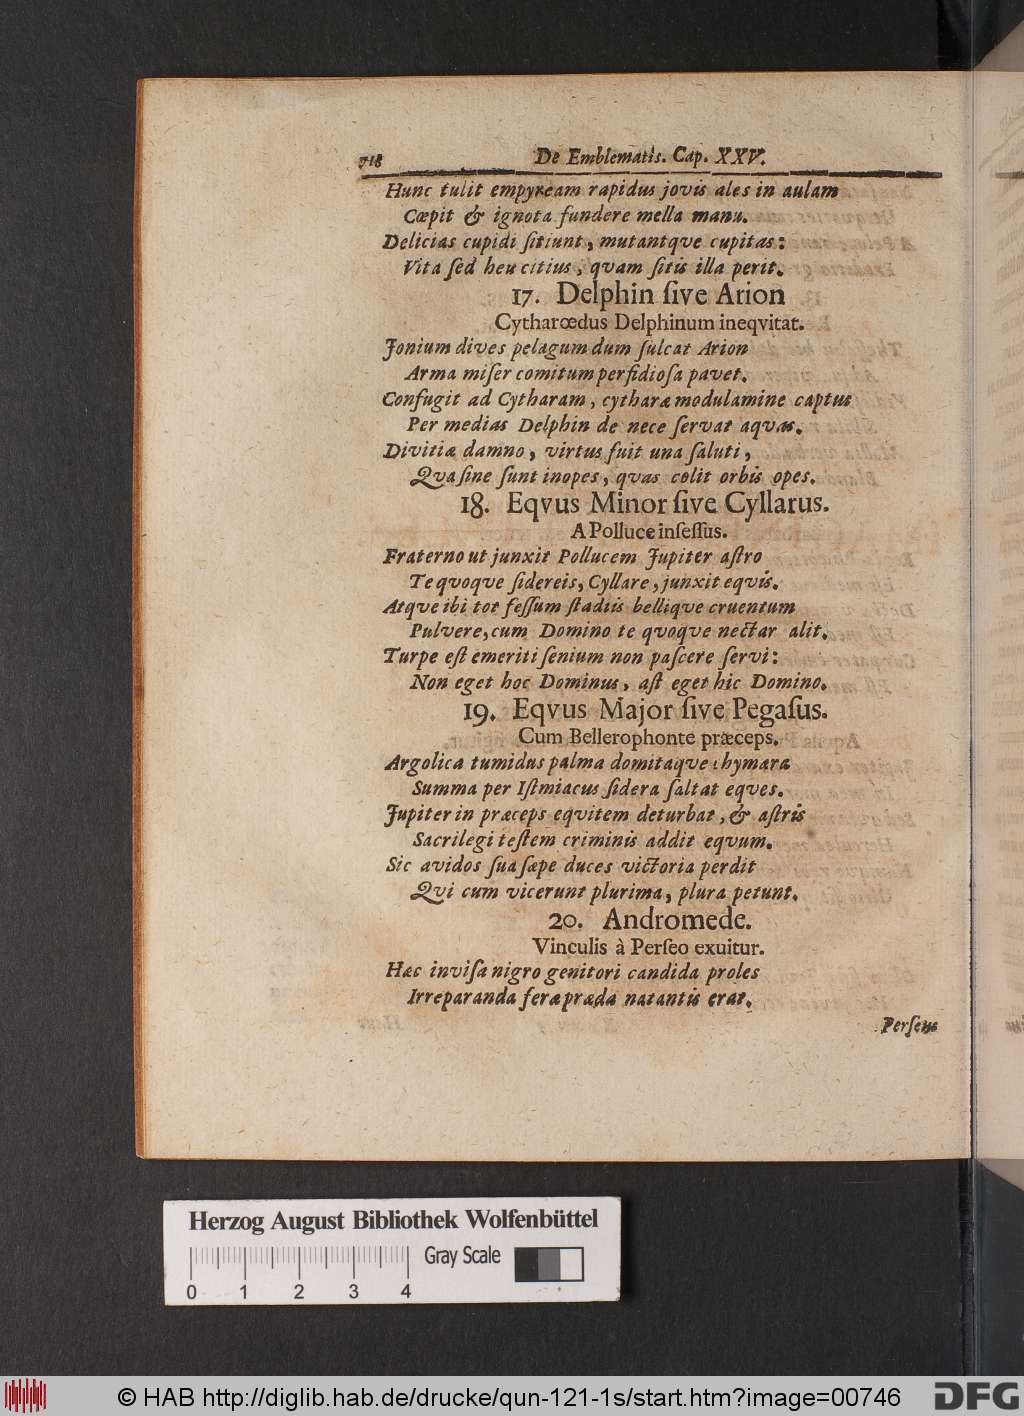 718 De Emblematis. Cap. XXV.
Hunc tulit empyream rapidus jovis ales in aulam
Cœpit & ignota fundere mella manu.
Delicias cupidi ſitiunt, mutantqve cupitas:
Vita ſed heu citius, quam ſitis illa perit.
17. Delphin ſive Arion
Cytharœdus Delphinum ineqvitat.
Jonium dives pelagum dum ſulcat Arion
Arma miſer comitum perfidioſa pavet.
Confugit ad Cytharam, cytharæ modulamine captus
Per medias Delphin de nece ſervat aquas.
Divitiæ damno, virtus fuit una ſaluti,
Qva ſine ſunt inopes, quas colit orbis opes.
18. Eqvus Minor ſive Cyllarus.
A Polluce inſeſſus.
Fraterno ut junxit Pollucem Jupiter aſtro
Te quoque ſidereis, Cyllare, junxit equis.
Atque ibi tot feſſum ſtadiis bellique cruentum
Pulvere, cum Domino te quoque nectar alit.
Turpe eſt emeriti ſenium non paſcere ſervi:
Non eget hoc Dominus, aſt eget hic Domino.
19. Eqvus Major ſive Pegaſus.
Cum Bellerophonte præceps.
Argolica tumidus palma domitaque chymæra
Summa per Iſtmiacus ſidera ſaltat eques.
Jupiter in præceps eqvitem deturbat, & aſtris
Sacrilegi teſtem criminis addit eqvum.
Sic avidos ſua ſæpe duces victoria perdit
Qvi cum vicerunt plurima, plura petunt.
20. Andromede.
Vinculis à Perſeo exuitur.
Hæc inviſa nigro genitori candida proles
Irreparanda feræ præda natantis erat.
Perſeus
Herzog August Bibliothek Wolfenbüttel
Gray Scale
0 1 2 3 4
© HAB http://diglib.hab.de/drucke/qun-121-1s/start.htm?image=00746
DFG